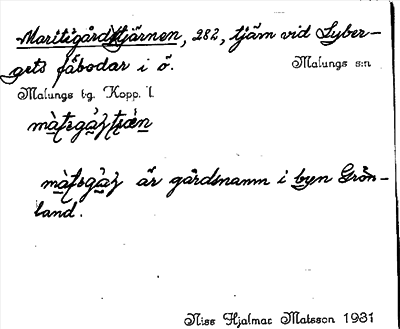 Maritigårdstjärnen, 282, tjärn vid Lyber-
gets fäbodar i ö.
Malungs s:n
Malungs tg. Kopp. l.
är gårdsnamn i byn Grön-
land.
Niss Hjalmar Matsson 1931